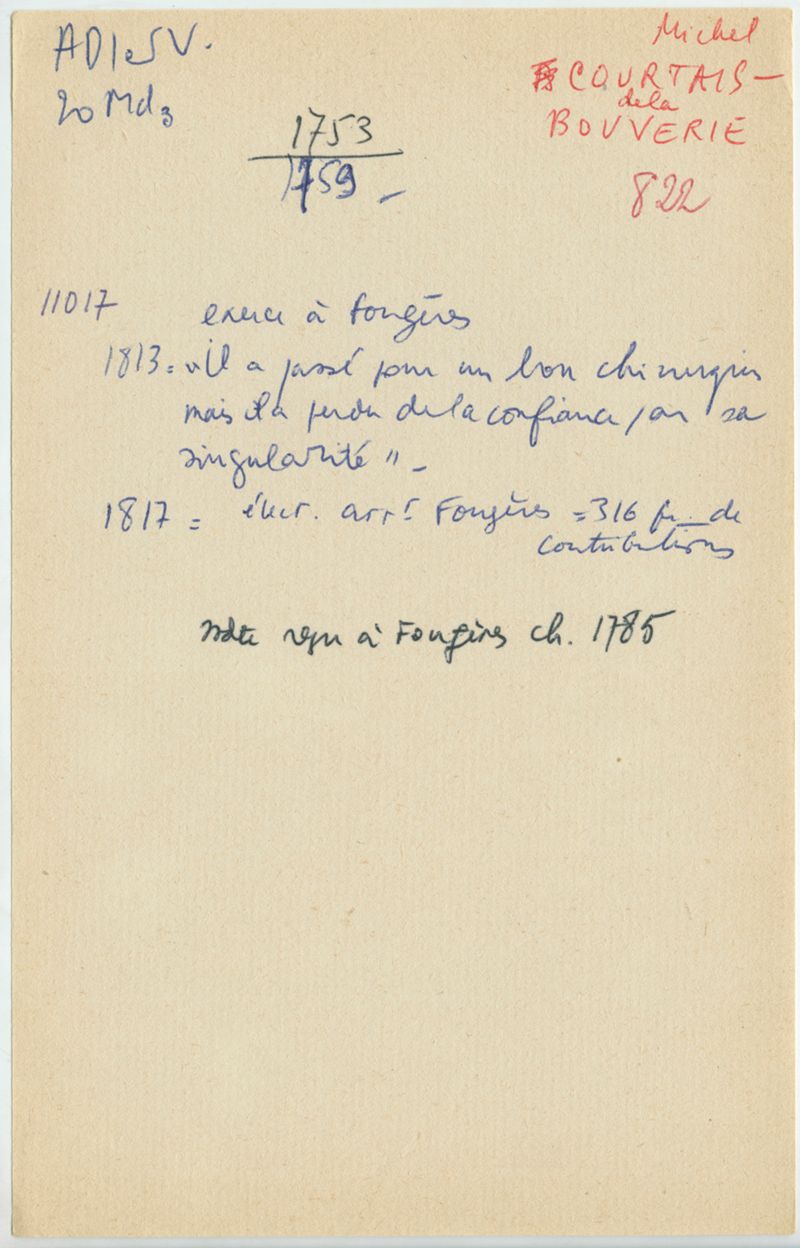 ADIeSV.
20 Md3
Michel
COURTAIS-
de la
BOUVERIE
822
1753
1759 -
11017 exerce à Fougères
1813 = "Il a passé pour un bon chirurgien
mais il a perdu de la confiance par sa
singularité" -
1817 = élect. arrt Fougères = 316 fr. de
contributions
reçu à Fougères ch. 1785